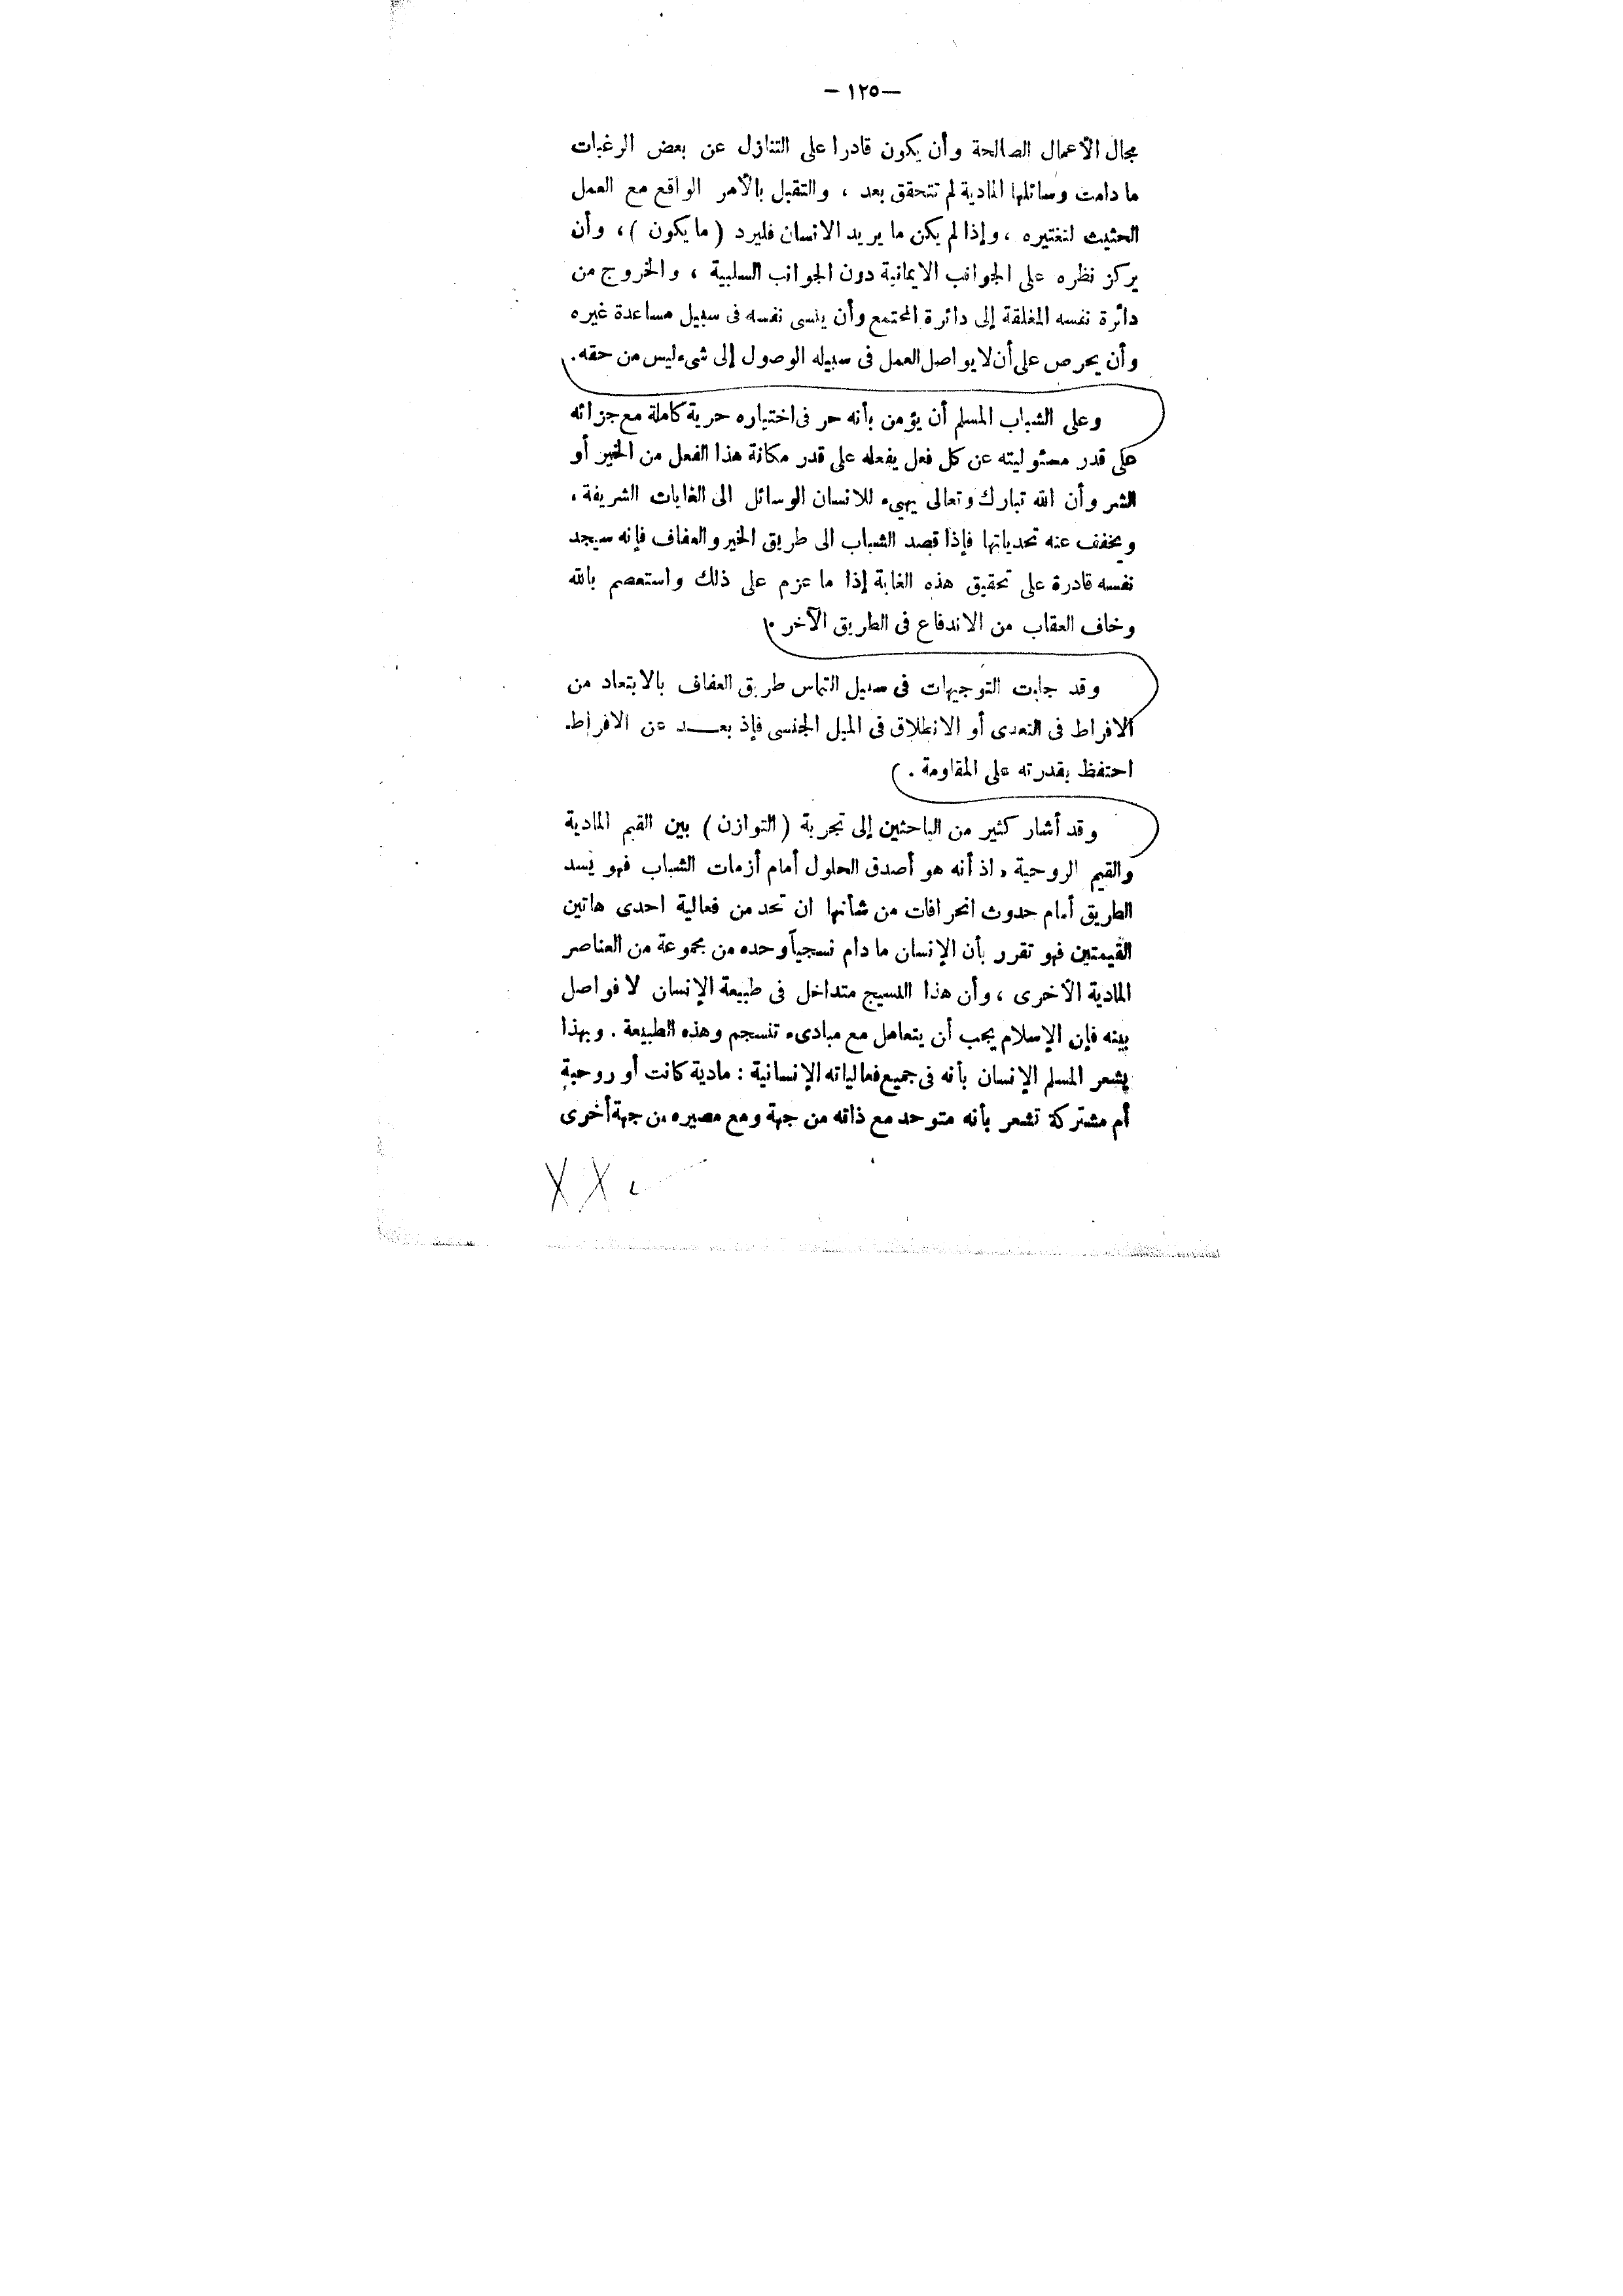 — ١٢٥ —
مجال الأعمال الصالحة وأن يكون قادرا على التنازل عن بعض الرغبات
ما دامت وسائلها المادية لم تتحقق بعد ، والتقبل بالأمر الواقع مع العمل
الحثيث لتغتيره ، وإذا لم يكن ما يريد الانسان فليرد ( ما يكون ) ، وأن
يركز نظره على الجوانب الايمانية دون الجوانب السلبية ، والخروج من
دائرة نفسه المغلقة إلى دائرة المجتمع وأن ينسى نفسه فى سبيل مساعدة غيره
وأن يحرص على أن لا يواصل العمل فى سبيله الوصول إلى شىء ليس من حقه .
وعلى الشباب المسلم أن يؤمن بأنه حر فى اختياره حرية كاملة مع جزائه
على قدر مسئوليته عن كل فعل يفعله على قدر مكانة هذا الفعل من الخير أو
الشر وأن الله تبارك وتعالى يهيء للانسان الوسائل الى الغايات الشريفة ،
ويخفف عنه تحدياتها فإذا قصد الشباب الى طريق الخير والعفاف فإنه سيجد
نفسه قادرة على تحقيق هذه الغاية إذا ما عزم على ذلك واستعصم بالله
وخاف العقاب من الاندفاع فى الطريق الآخر .
وقد جاءت التوجيهات فى سبيل التماس طريق العفاف بالابتعاد من
الافراط فى التعدى أو الانطلاق فى الميل الجنسى فإذ بعـــد عن الافراط
احتفظ بقدرته على المقاومة .
وقد أشار كثير من الباحثين إلى تجربة ( التوازن ) بين القيم المادية
والقيم الروحية ، اذ أنه هو أصدق الحلول أمام أزمات الشباب فهو يسد
الطريق أمام حدوث انحرافات من شأنها ان تحد من فعالية احدى هاتين
القيمتين فهو تقرر بأن الإنسان ما دام نسجياً وحده من مجموعة من العناصر
المادية الأخرى ، وأن هذا النسيج متداخل فى طبيعة الإنسان لا فواصل
بينه فإن الإسلام يجب أن يتعامل مع مبادىء تنسجم وهذه الطبيعة . وبهذا
يشعر المسلم الإنسان بأنه فى جميع فعالياته الإنسانية : مادية كانت أو روحية
أم مشتركة تشعر بأنه متوحد مع ذاته من جهة ومع مصيره من جهة أخرى